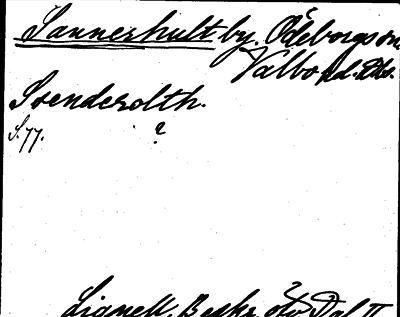 Sannerhult by. Ödeborgs sn.
Valbo hd. Dls.
Svenderolth.
S. 77. ?
Lignell, Beskr. öfv. Dal II